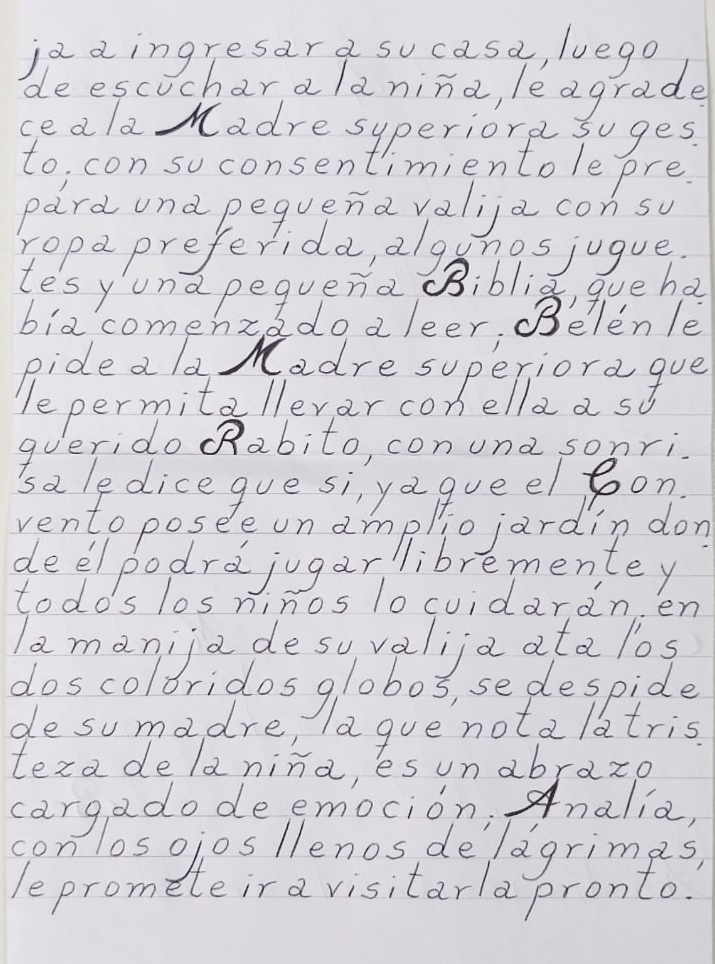 ja a ingresar a su casa, luego
de escuchar a la niña, le agrade
ce a la Madre superiora su ges.
to, con su consentimiento le pre.
para una pequeña valija con su
ropa preferida, algunos jugue.
tes y una pequeña Biblia, que ha
bía comenzado a leer; Belén le
pide a la Madre superiora que
le permita llevar con ella a su
querido Rabito, con una sonri.
sa le dice que si, ya que el Con.
vento posee un amplio jardín don
de él podrá jugar libremente y
todos los niños lo cuidarán, en
la manija de su valija ata los
dos coloridos globos, se despide
de su madre, la que nota la tris
teza de la niña, es un abrazo
cargado de emoción; Analía,
con los ojos llenos de lágrimas,
le promete ir a visitarla pronto.